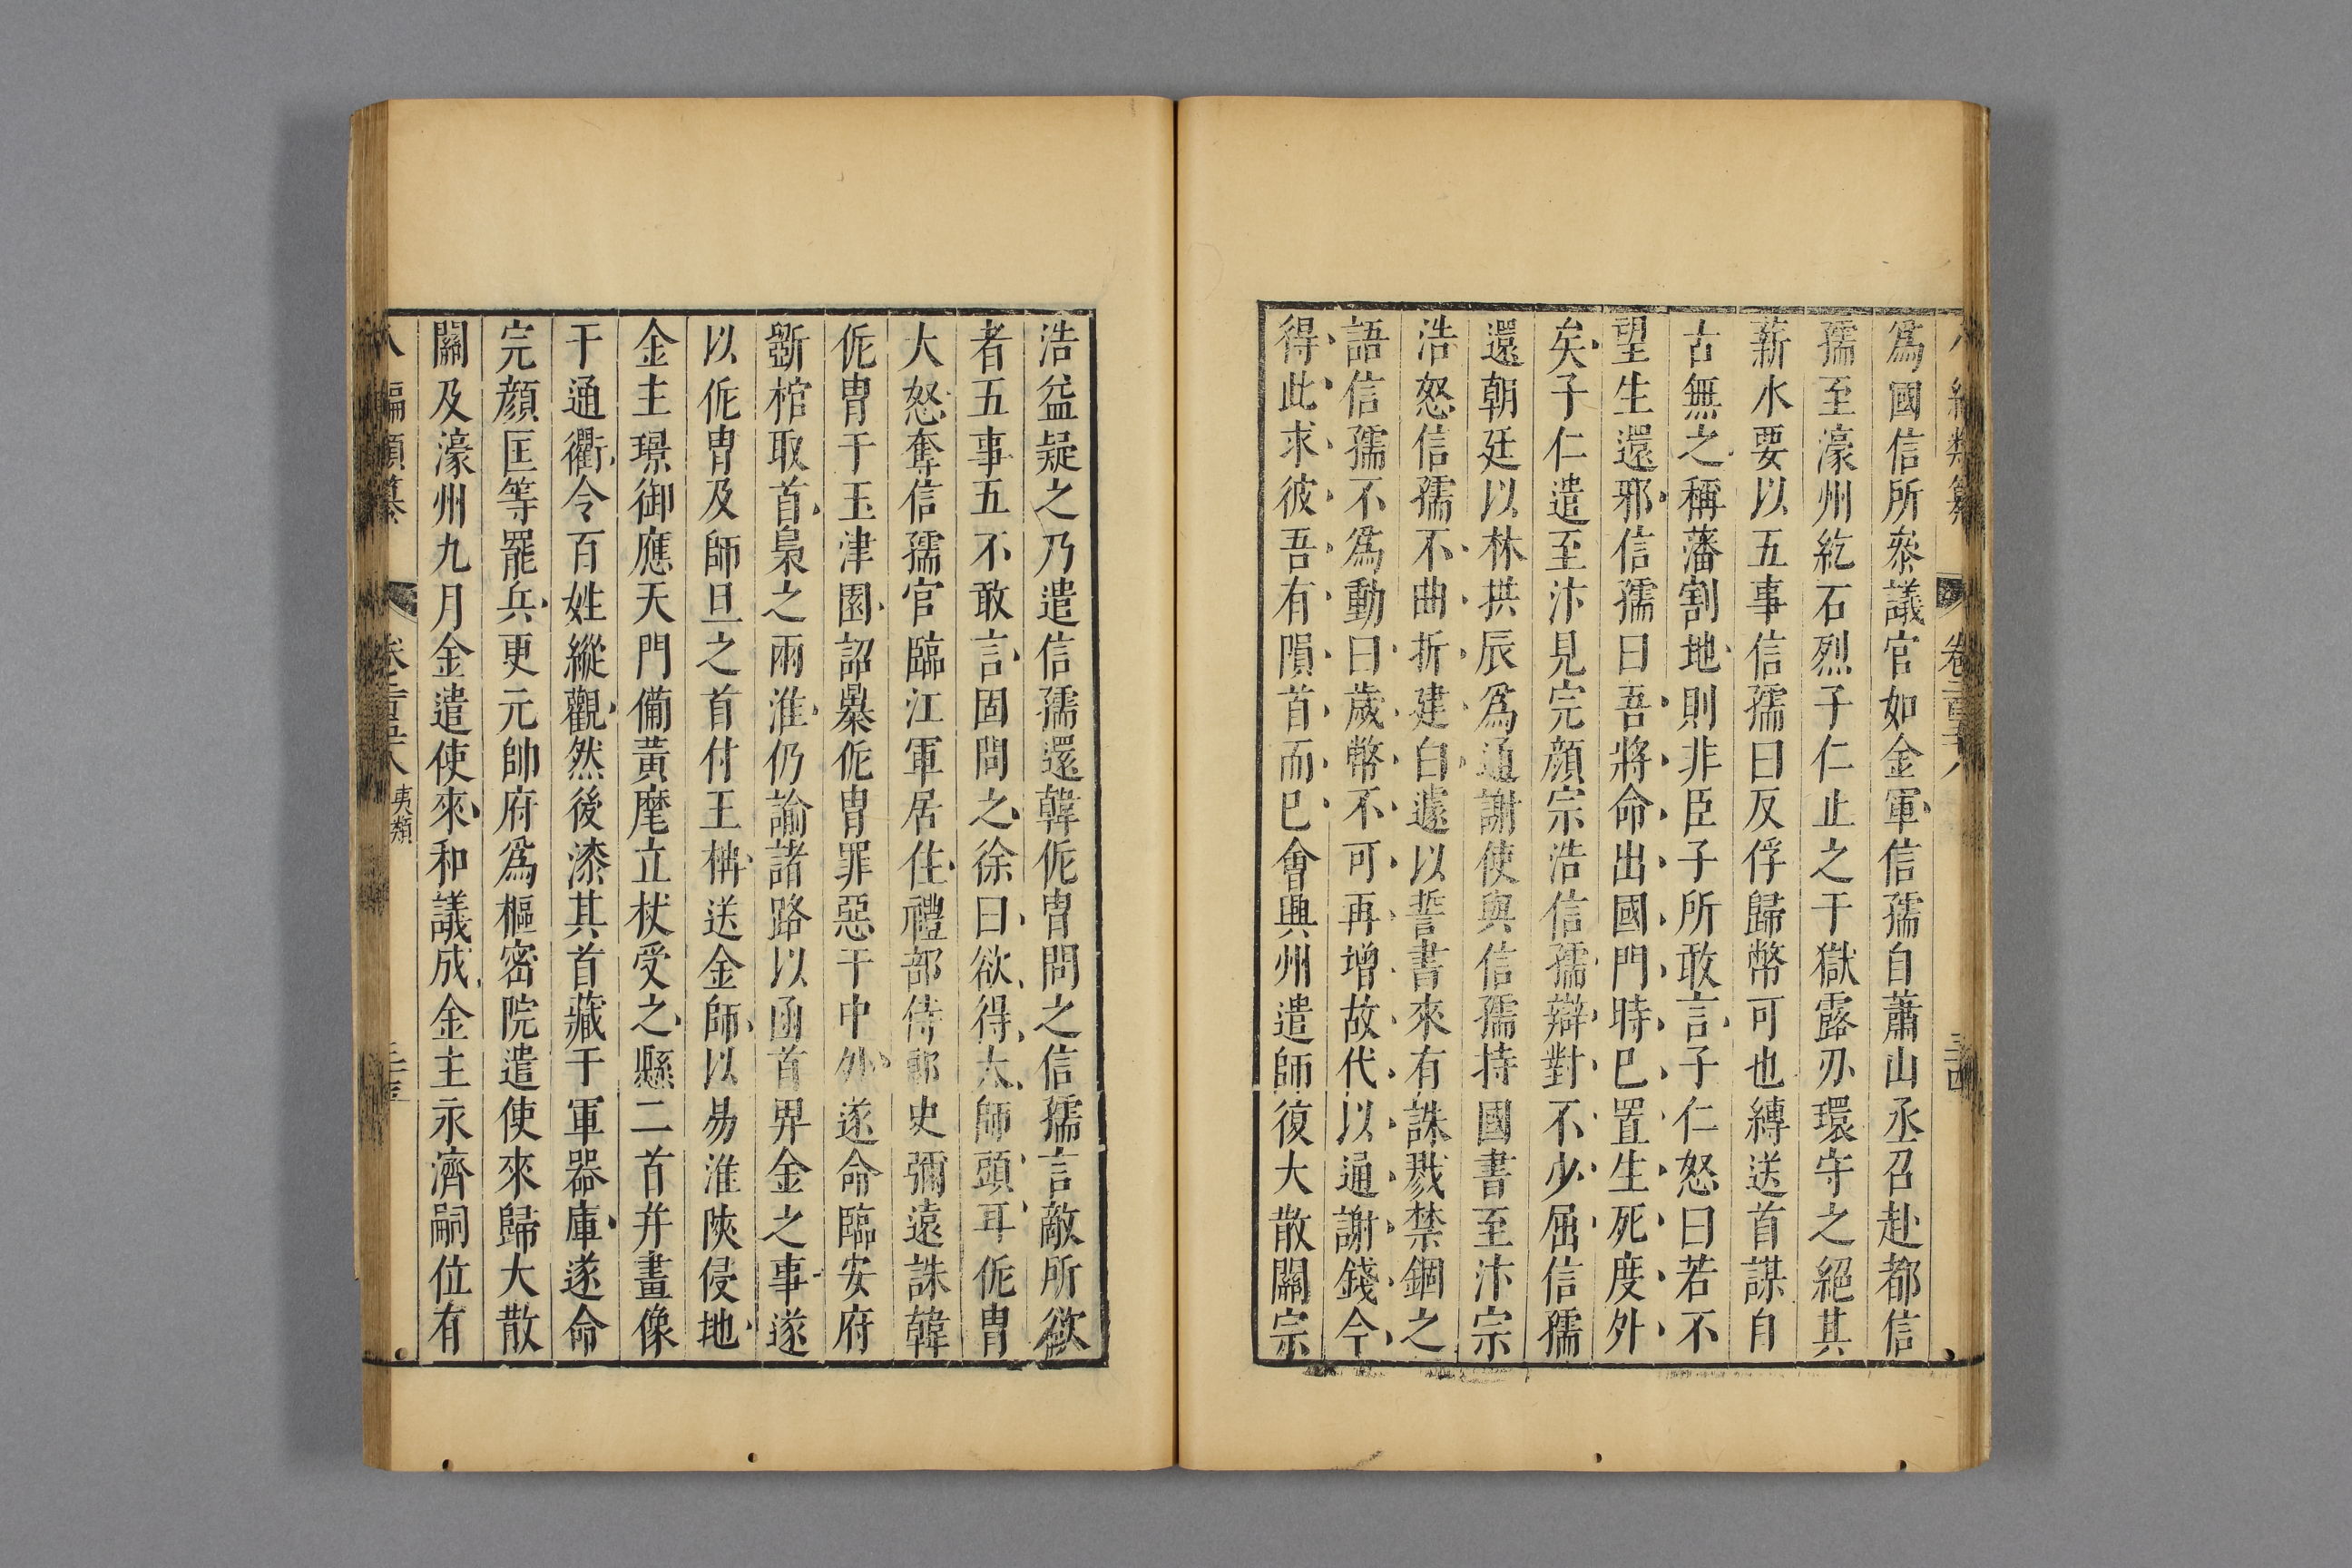 爲國信所叅議官如金軍信孺自蕭山丞召赴都信
孺至濠州紇石烈子仁止之于獄露刃環守之絕其
薪水要以五事信孺曰反俘歸幣可也縛送首謀自
古無之稱藩割地則非臣子所敢言子仁怒曰若不
望生還邪信孺曰吾將命出國門時巳置生死度外
矣子仁遣至汴見完顏宗浩信孺辯對不少屈信孺
還朝廷以林拱辰爲通謝使與信孺持國書至汴宗
浩怒信孺不曲折建白遽以誓書來有誅戮禁錮之
語信孺不爲動曰歲幣不可再增故代以通謝錢今
得此求彼吾有隕首而巳會興州遣師復大散關宗
浩益疑之乃遣信孺還韓侂冑問之信孺言敵所欲
者五事五不敢言固問之徐曰欲得太師頭耳侂冑
大怒奪信孺官臨江軍居住禮部侍郎史彌遠誅韓
侂冑于玉津園詔暴侂冑罪惡于中外遂命臨安府
斵棺取首梟之兩淮仍諭諸路以函首畀金之事遂
以侂冑及師旦之首付王柟送金師以易淮陝侵地
金主璟御應天門備黃麾立杖受之縣二首并畫像
于通衢令百姓縱觀然後漆其首藏于軍器庫遂命
完顏匡等罷兵更元帥府爲樞密院遣使來歸大散
關及濠州九月金遣使來和議成金主永濟嗣位有
八編類纂 卷 夷類